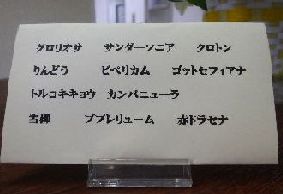 グロリオサ サンダーソニア クロトン
りんどう ヒペリカム ゴットセフィアナ
トルコキキョウ カンパニューラ
雪柳 ブプレリューム 赤ドラセナ